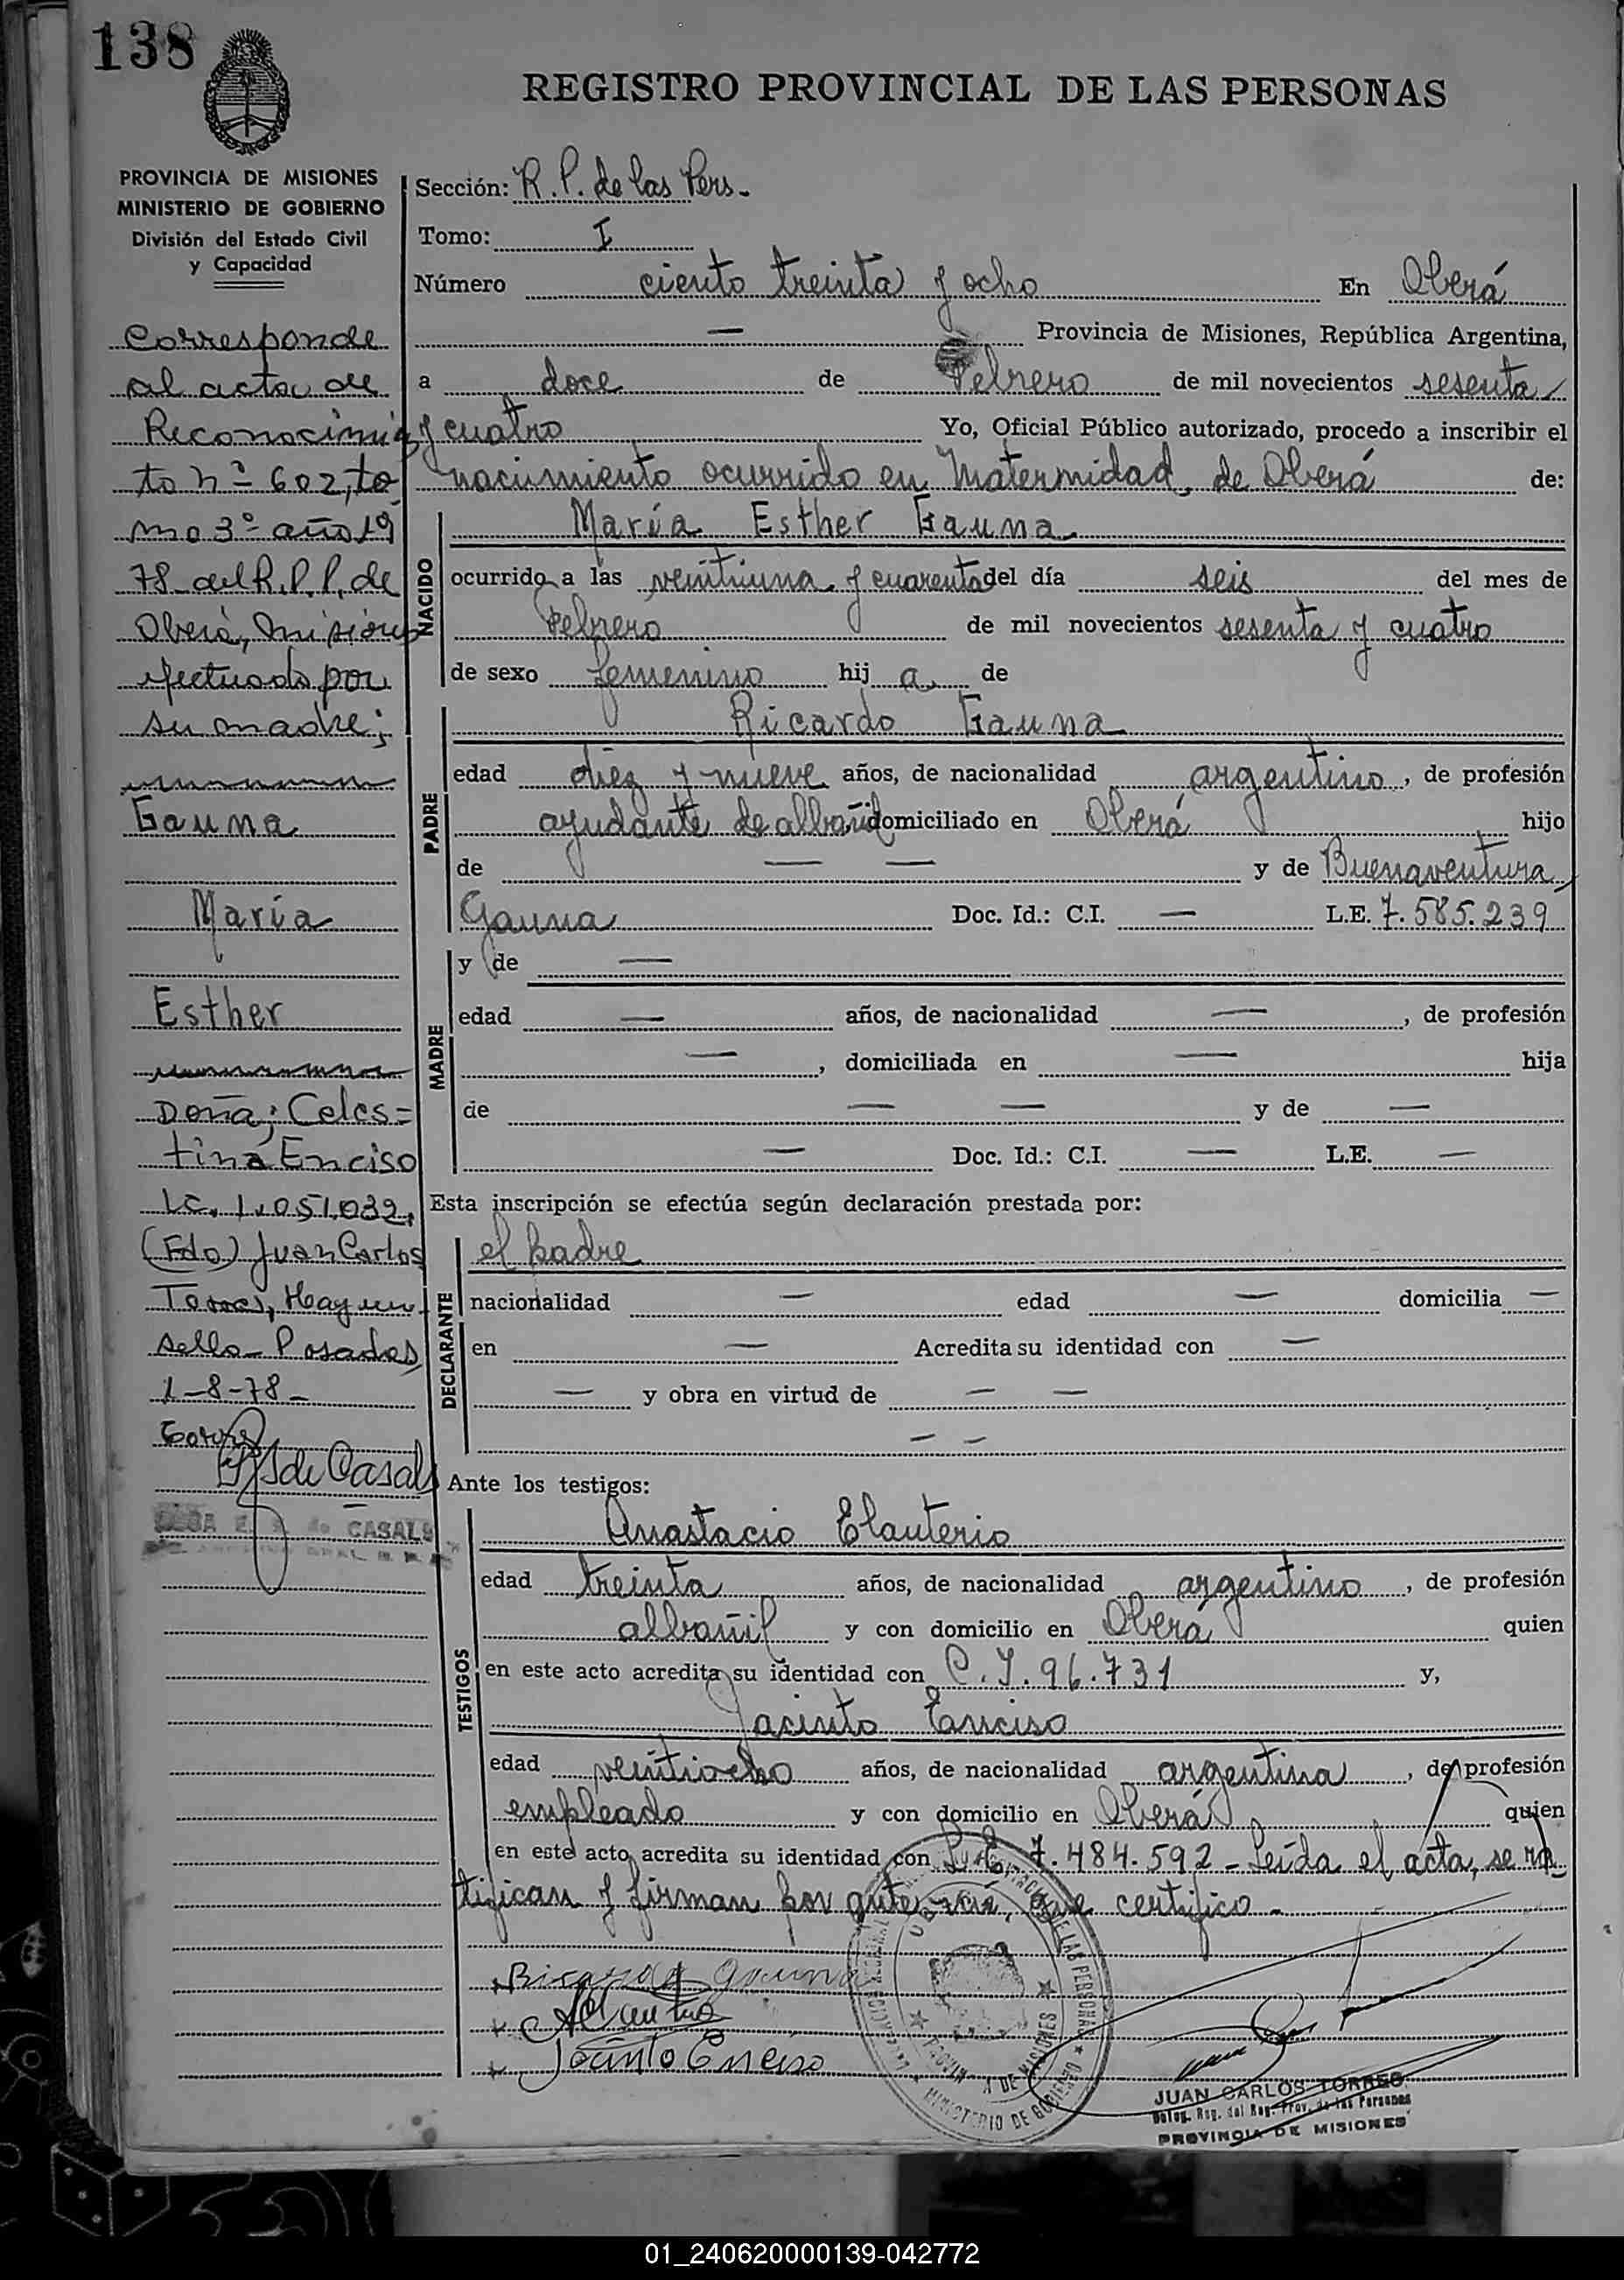 138
REGISTRO PROVINCIAL DE LAS PERSONAS
PROVINCIA DE MISIONES
MINISTERIO DE GOBIERNO
División del Estado Civil
y Capacidad
Corresponde
al acta de
Reconocimien
to nº 602, to
mo 3º año 19
78 del R.P.P. de
Oberá, Misiones
efectuado por
su madre;
Gauna
María
Esther
Doña; Celes=
tina Enciso
LC. 1.051.032,
(Fdo) Juan Carlos
Torres, Hay un
sello - Posadas
1-8-78-
de Casals
CASALS
Sección: R. P. de las Pers-
Tomo: I
Número ciento treinta y ocho En Oberá
— Provincia de Misiones, República Argentina,
a doce de Febrero de mil novecientos sesenta
y cuatro Yo, Oficial Público autorizado, procedo a inscribir el
nacimiento ocurrido en Maternidad, de Oberá de:
NACIDO
María Esther Gauna
ocurrido a las veintiuna y cuarenta del día seis del mes de
Febrero de mil novecientos sesenta y cuatro
de sexo femenino hij a de
PADRE
Ricardo Gauna
edad diez y nueve años, de nacionalidad argentino, de profesión
ayudante de albañil domiciliado en Oberá hijo
de — — y de Buenaventura
Gauna Doc. Id.: C.I. — L.E. 7.585.239
MADRE
y de —
edad — años, de nacionalidad —, de profesión
—, domiciliada en — hija
de — — y de —
— Doc. Id.: C.I. — L.E. —
Esta inscripción se efectúa según declaración prestada por:
DECLARANTE
el padre
nacionalidad — edad — domicilia —
en — Acredita su identidad con —
— y obra en virtud de — —
— —
Ante los testigos:
TESTIGOS
Anastacio Elauterio
edad treinta años, de nacionalidad argentino, de profesión
albañil y con domicilio en Oberá quien
en este acto acredita su identidad con C.I. 96.731 y,
Jacinto Enciso
edad veintiocho años, de nacionalidad argentina, de profesión
empleado y con domicilio en Oberá quien
en este acto acredita su identidad con L.E. 7.484.592 - Leída el acta, se ra
tifican y firman por ante mí, que certifico -
Ricardo Gauna
Jacinto Enciso
MINISTERIO DE GOBIERNO
JUAN CARLOS TORRES
Deleg. Reg. del Reg. Prov. de las Personas
PROVINCIA DE MISIONES
01_240620000139-042772